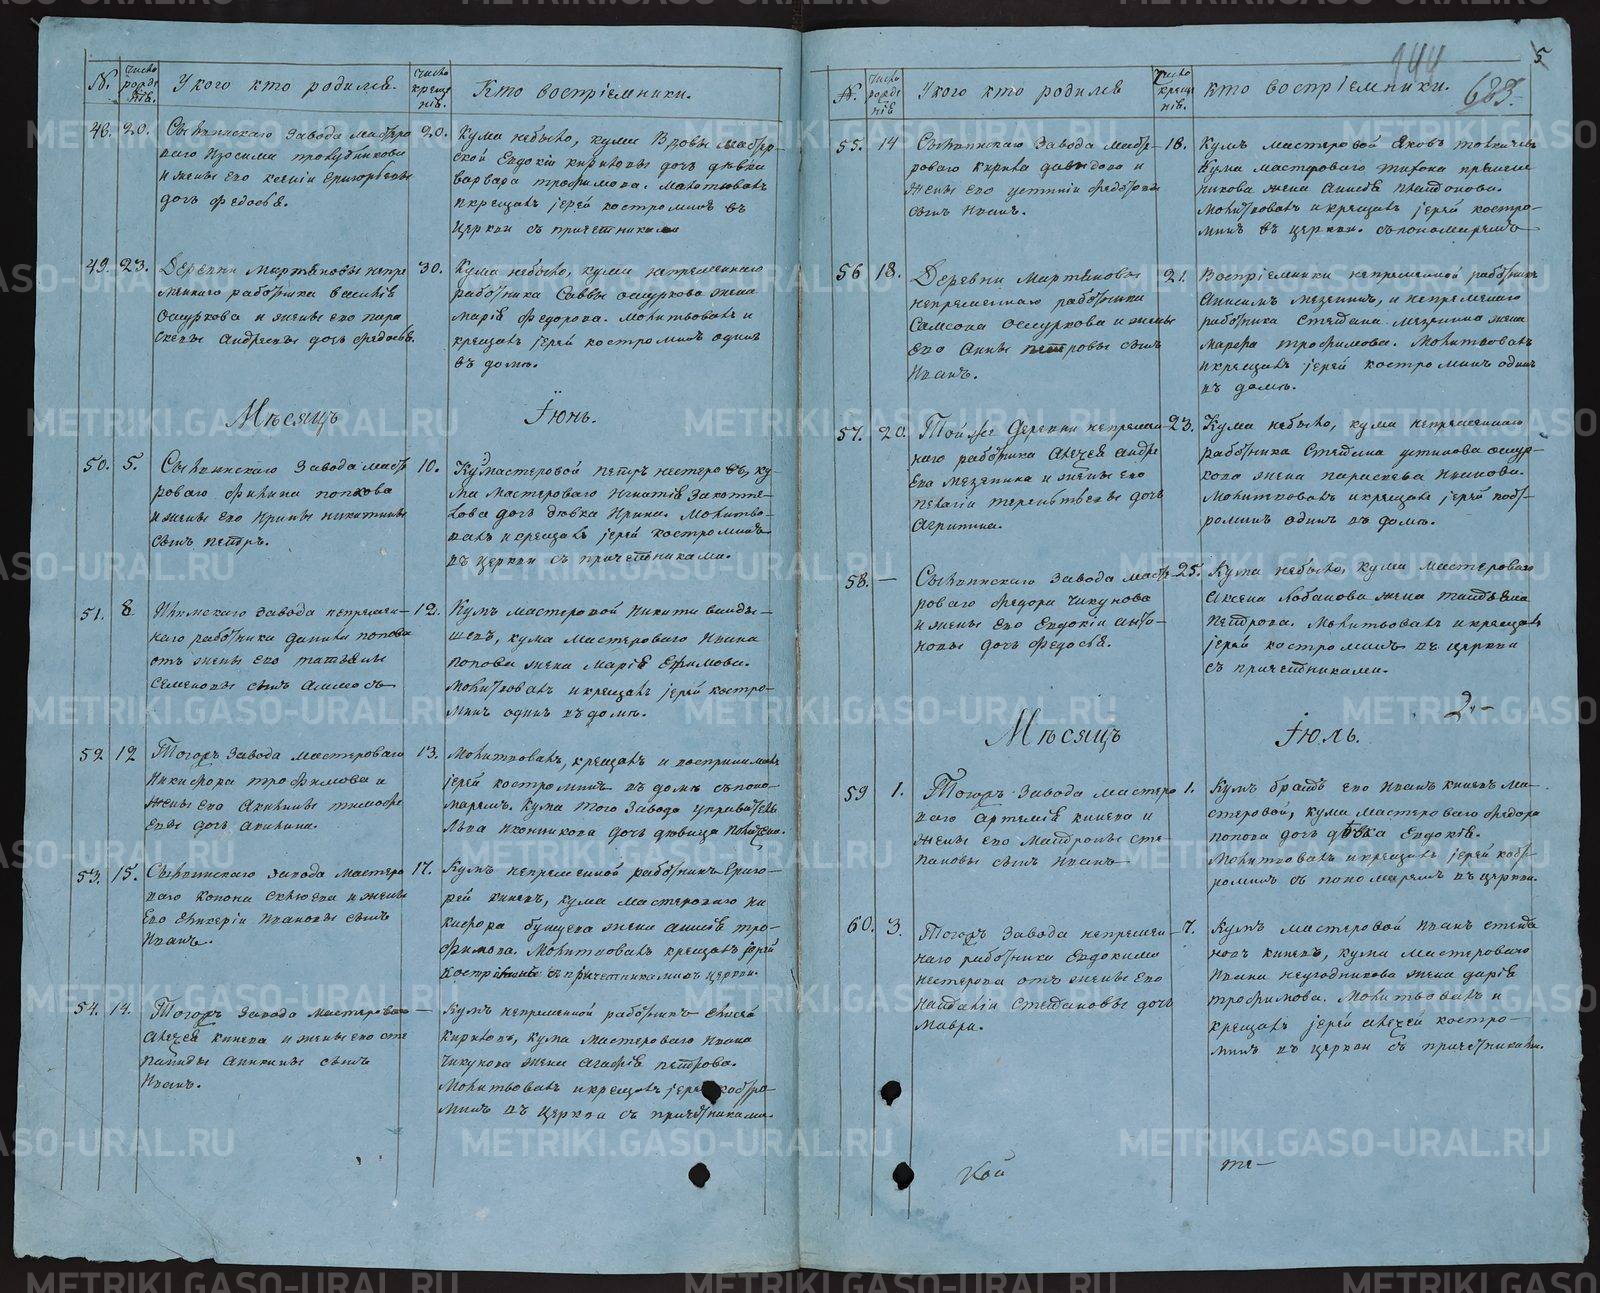 №. Число рожденiя. У кого кто родился. Число крещенiя. Кто воспрiемники.
48. 20. Сылвинскаго завода мастеро
ваго
и жены его Ксенiи Григорьевы
дочь Федосья.
20. Кума небыло, кума Вдовы мастеро
ской Евдокiи дочь девка
Варвара Трофимова. Молитвовалъ
и крещалъ iерей Костроминъ въ
Церкви съ причетниками
49. 23. Деревни Мартяновы непре
меннаго работника Василiя
Ошуркова и жены его Пара
скевы Андреевы дочь Федосья.
30. Кума небыло, кума непременнаго
работника Саввы Ошуркова жена
Марiя Федорова. Молитвовалъ и
крещалъ iерей Костроминъ одинъ
въ доме.
Мѣсяцъ Iюнь.
50. 5. Сылвинскаго завода масте
роваго Филипа Попкова
и жены его Ирины Никитины
сынъ Петръ.
10. Кумъ мастеровой Петръ Нестеровъ, ку-
ма мастероваго Игнатiя
дочь девка Ирина. Молитво-
валъ и крещалъ iерей Костроминъ
въ церкви съ причетниками.
51. 8 завода непремен-
наго работника Данила Попова
отъ жены его Татьяны
Семеновы сынъ Амосъ
12. Кумъ мастеровой Никита
кума мастероваго Ивана
Попова жена Марiя Ефимова.
Молитвовалъ и крещалъ iерей Костро-
минъ одинъ въ доме.
52 12 Тогожъ завода мастероваго
Никифора Трофимова и
жены его Акилины Тимофе
евы дочь Акилина.
13. Молитвовалъ, крещалъ и воспринималъ
iерей Костроминъ въ доме съ поно-
маремъ. Кума того завода управитель
Льва Иконникова дочь девица
53. 15. Сылвинскаго завода мастеро
ваго Конона и жены
его Гликерiи Ивановы сынъ
Иванъ.
17. Кумъ непременной работникъ Григо-
рей Киневъ, кума мастероваго Ни
кифора жена Анисiя Тро-
фимова. Молитвовалъ крещалъ iерей
Костроминъ съ причетниками въ церкви.
54. 14. Тогожъ завода мастероваго
Алексея Кинева и жены его Сте
паниды Аникины сынъ
Иванъ.
— Кумъ непременной работникъ Елисей
Кириловъ, кума мастероваго Ивана
Чикунова жена Агафiя Петрова.
Молитвовалъ и крещалъ iерей Костро-
минъ въ Церкви съ причетниками.
144 5
683.
№. Число рожденiя У кого кто родился Число крещенiя. Кто воспрiемники.
55. 14 Сылвинскаго завода масте
роваго Кирила Давыдова и
жены его Устинiи Федоровы
сынъ Иванъ.
18. Кумъ мастеровой Яковъ
Кума мастероваго
жена Анисiя Платонова.
Молитвовалъ и крещалъ iерей Костро-
минъ въ церкви. съ пономаремъ
56 18. Деревни Мартяновы
непременнаго работника
Самсона Ошуркова и жены
его Анны Петровы сынъ
Иванъ.
21. Воспрiемники непременной работникъ
Анисимъ Мезенинъ, и непременнаго
работника Степана Мезенина жена
Марфа Трофимова. Молитвовалъ
и крещалъ iерей Костроминъ одинъ
въ доме.
57. 20. Той же деревни непремен-
наго работника Алексея Андре
ева Мезенина и жены его
Пелагiи Терентьевы дочь
Агрипина.
23. Кума небыло, кума непременнаго
работника Степана Устинова Ошур-
кова жена Параскева Иванова.
Молитвовалъ и крещалъ iерей Кост-
роминъ одинъ въ доме.
58. — Сылвинскаго завода масте
роваго Федора Чикунова
и жены его Евдокiи Анто-
новы дочь Федосья.
25. Кума небыло, кума мастероваго
Аксена Лобанова жена Татьяна
Петрова. Молитвовалъ и крещалъ
iерей Костроминъ въ церкви
съ причетниками.
2.-
Мѣсяцъ Iюль.
59 1. Тогожъ завода мастеро
ваго Артемiя Кинева и
жены его Матроны Сте
пановы сынъ Иванъ
1. Кумъ братъ его Иванъ Киневъ ма-
стеровой, кума мастероваго Федора
Попова дочь девка Евдокiя.
Молитвовалъ и крещалъ iерей Кост-
роминъ съ пономаремъ въ церкви.
60. 3. Тогожъ завода непремен-
наго работника Евдокима
Нестерова отъ жены его
Наталiи Степановы дочь
Мавра.
7. Кумъ мастеровой Иванъ Степа
новъ Киневъ, кума мастероваго
Ивана Неугодникова жена Дарiя
Трофимова. Молитвовалъ и
крещалъ iерей Алексей Костро-
минъ въ церкви съ причетниками.
Кой те-
METRIKI.GASO-URAL.RU